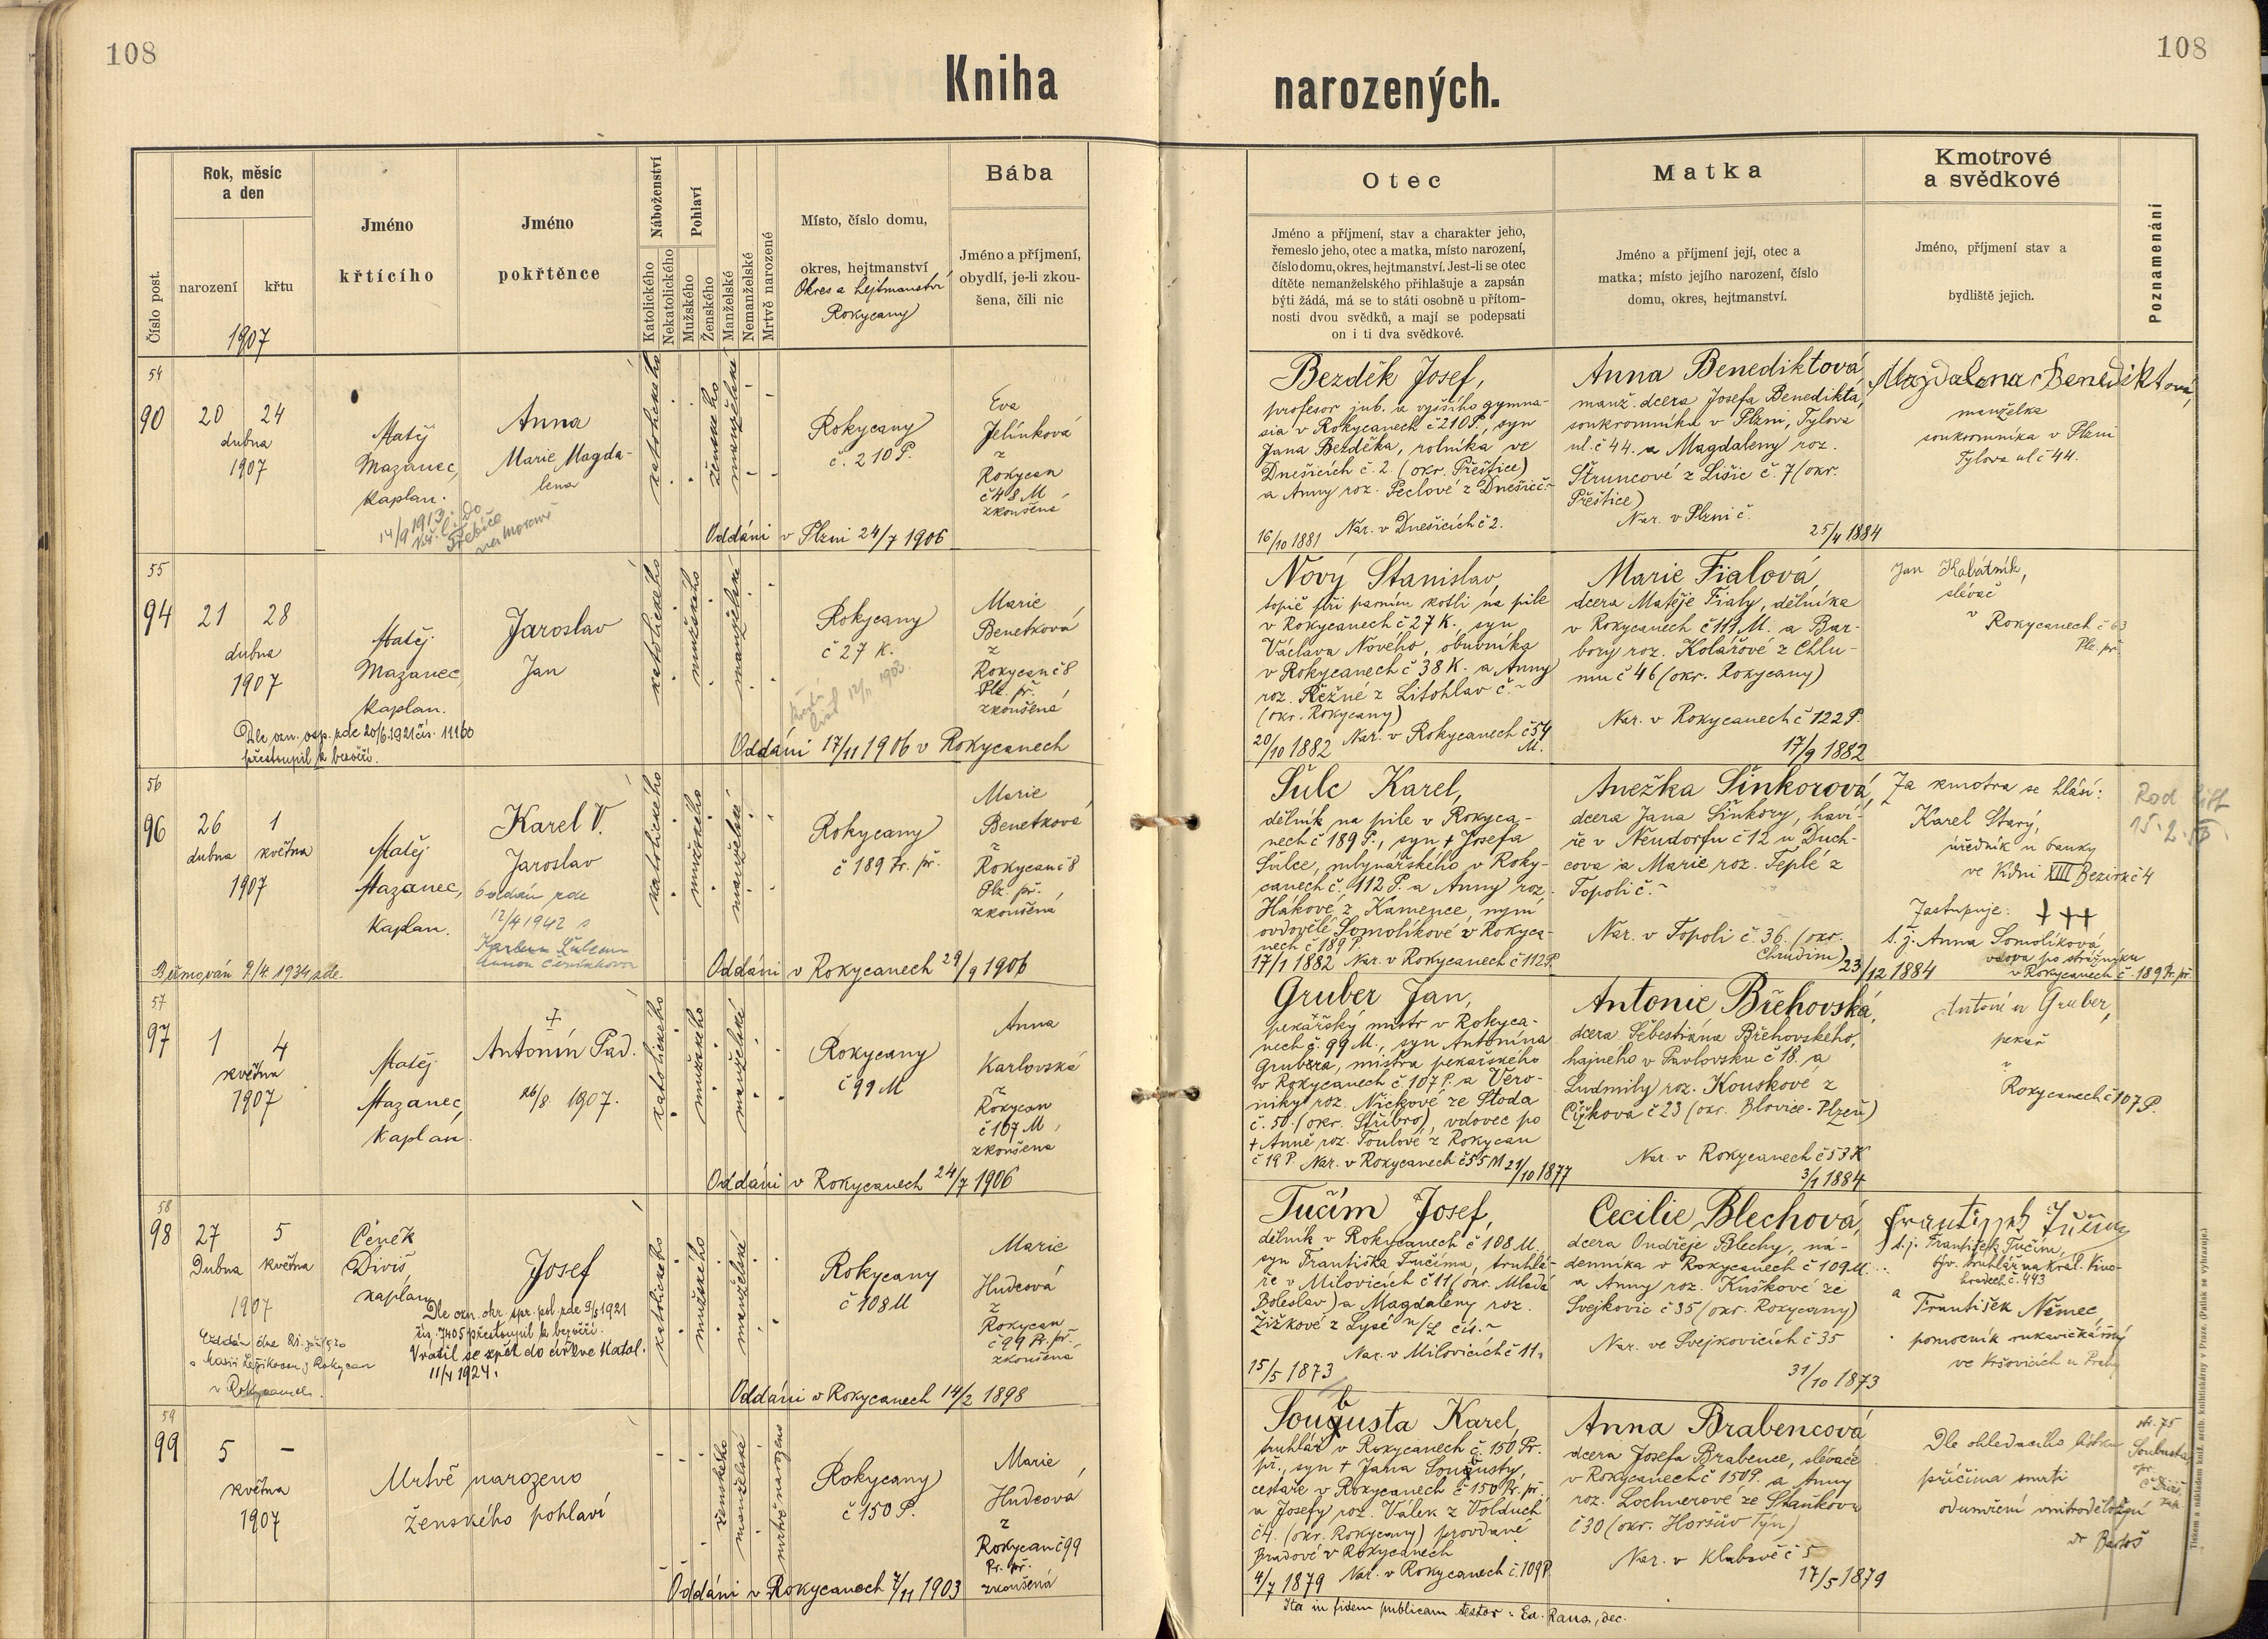 108
Kniha
narozených.
108
Číslo post.
Rok, měsíc
a den
narození
křtu
1907
Jméno
křtícího
Jméno
pokřtěnce
Náboženství
Katolického
Nekatolického
Pohlaví
Mužského
Ženského
Manželské
Nemanželské
Mrtvě narozené
Místo, číslo domu,
okres, hejtmanství
Okres a hejtmanství
Rokycany
Bába
Jméno a příjmení,
obydlí, je-li zkou-
šena, čili nic
Otec
Jméno a příjmení, stav a charakter jeho,
řemeslo jeho, otec a matka, místo narození,
číslo domu, okres, hejtmanství. Jest-li se otec
dítěte nemanželského přihlašuje a zapsán
býti žádá, má se to státi osobně u přítom-
nosti dvou svědků, a mají se podepsati
on i ti dva svědkové.
Matka
Jméno a příjmení její, otec a
matka; místo jejího narození, číslo
domu, okres, hejtmanství.
Kmotrové
a svědkové
Jméno, příjmení stav a
bydliště jejich.
Poznamenání
54
90
20 24
dubna
1907
Matěj
Mazanec,
kaplan.
14/9 1913
Třebíče
na Moravě
Anna
Marie Magda-
lena
katolického
ženského
manželské
Rokycany
č. 210 P.
Eva
Jelínková
z
Rokycan
č 48 M
zkoušená
Oddáni v Plzni 24/7 1906
Bezděk Josef,
profesor jub. a vyššího gymna-
sia v Rokycanech č 210 P., syn
Jana Bezděka, rolníka ve
Dnešicích č. 2. (okr. Přeštice)
a Anny roz. Peclové z Dnešic č ~
16/10 1881 Nar. v Dnešicích č 2.
Anna Benediktová
manž. dcera Josefa Benedikta,
soukromníka v Plzni, Tylova
ul. č 44. a Magdaleny roz.
Štruncové z Lišic č. 7 (okr.
Přeštice)
Nar. v Plzni č.
25/4 1884
Magdalena Benediktová,
manželka
soukromníka v Plzni
Tylova ul č 44.
55
94
21 28
dubna
1907
Matěj
Mazanec,
kaplan.
Dle ozn. osp. zde 20/6. 1921 čís. 11160
přestoupil k bezvěří.
Jaroslav
Jan
katolického
mužského
manželské
Rokycany
č 27 K.
list 12/11 1903
Marie
Benetková
z
Rokycan č 8
Plz. př.
zkoušená
Oddáni 17/11 1906 v Rokycanech
Nový Stanislav,
topič při parním kotli na pile
v Rokycanech č 27 K. syn
Václava Nového, obuvníka
v Rokycanech č 38 K. a Anny
roz. Režné z Litohlav č. ~
(okr. Rokycany)
20/10 1882 Nar. v Rokycanech č 54
M.
Marie Fialová
dcera Matěje Fialy, dělníka
v Rokycanech č 111 M. a Bar-
bory roz. Kolářové z Chlu-
mu č 46 (okr. Rokycany)
Nar. v Rokycanech č 122 P.
17/9 1882
Jan Kabátník,
slévač
v Rokycanech č 63
Plz. př.
56
96
26 1
dubna května
1907
Matěj
Mazanec,
kaplan.
Biřmován 2/4. 1934 zde.
Karel V.
Jaroslav
oddán zde
12/4 1942 s
katolického
mužského
manželské
Rokycany
č 189 Pr. př.
Marie
Benetková
z
Rokycan č 8
Plz. př.
zkoušená
Oddáni v Rokycanech 29/9 1906
Šulc Karel,
dělník na pile v Rokyca-
nech č 189 P., syn + Josefa
Šulce, mlynářského v Roky-
canech č. 112 P. a Anny roz.
Hákové z Kamence, nyní
ovdovělé Somolíkové v Rokyca-
nech č 189 P.
17/1 1882 Nar. v Rokycanech č 112 P.
Anežka Šinkorová,
dcera Jana Šinkory, haví-
ře v Neudorfu č 12 u Duch-
cova a Marie roz. Teplé z
Topoli č. ~
Nar. v Topoli č. 36. (okr.
Chrudim)
23/12 1884
Za kmotra se hlásí:
Karel Starý,
úředník u banky
ve Vídni XIII Bezirk č 4
Zastupuje: +++
t. j. Anna Somolíková
vdova po strážníku
v Rokycanech č. 189 Pr. př.
Rod list
15. 2.
57
97
1 4
května
1907
Matěj
Mazanec,
kaplan.
+
Antonín Pad.
26/8 1907.
katolického
mužského
manželské
Rokycany
č 99 M
Anna
Karlovská
z
Rokycan
č 167 M
zkoušená
Oddáni v Rokycanech 24/7 1906
Gruber Jan,
pekařský mistr v Rokyca-
nech č. 99 M., syn Antonína
Grubera, mistra pekařského
v Rokycanech č. 107 P. a Vero-
niky roz. Nickové ze Stoda
č. 50. (okr. Stříbro), vdovec po
+ Anně roz. Toulové z Rokycan
č 19 P. Nar. v Rokycanech č 55 M 21/10 1877
Antonie Břehovská,
dcera Šebestiána Břehovského,
hajného v Pavlovsku č 18. a
Ludmily roz. Kouskové z
Čížkova č 23 (okr. Blovice - Plzeň)
Nar. v Rokycanech č 53 K
3/1 1884
Antonín Gruber,
pekař
v
Rokycanech č 107 P.
58
98
27 5
Dubna května
1907
Čeněk
Diviš
kaplan
Josef
Dle ozn. okr. spr. pol. zde 9/5 1921
čís. 7405 přestoupil k bezvěří.
Vrátil se zpět do církve katol.
11/4 1924.
v Rokycanech.
katolického
mužského
manželské
Rokycany
č 108 M
Marie
Hudcová
z
Rokycan
č 99 Pr. př.
zkoušená
Oddáni v Rokycanech 14/2 1898
Tučím Josef,
dělník v Rokycanech č 108 M.
syn Františka Tučíma, truhlá-
ře v Milovicích č 11 (okr. Mladá
Boleslav) a Magdaleny roz.
Žižkové z Lysé n/L čís. ~
Nar. v Milovicích č 11.
15/5 1873
Cecilie Blechová,
dcera Ondřeje Blechy, ná-
denníka v Rokycanech č 109 M.
a Anny roz. Kuškové ze
Svejkovic č 35 (okr. Rokycany)
Nar. ve Svejkovicích č 35
31/10 1873
František Tučím
t. j. František Tučím,
truhlář na Král. Vino-
hradech č. 443
a
František Němec,
pomocník rukavičkářský
ve Vršovicích u Prahy
59
99
5 –
května
1907
Mrtvě narozeno
ženského pohlaví
ženského
manželské
mrtvě narozeno
Rokycany
č 150 P.
Marie
Hudcová
z
Rokycan č 99
Pr. př.
zkoušená
Oddáni v Rokycanech 7/11 1903
Soubusta Karel,
truhlář v Rokycanech č. 150 Pr.
př., syn + Jana Sougusty,
cestáře v Rokycanech č 150 Pr. př.
a Josefy roz. Válek z Volduch
č 4. (okr. Rokycany) provdané
Bradové v Rokycanech
4/7 1879 Nar. v Rokycanech č. 109 P.
Anna Brabencová
dcera Josefa Brabence, slévače
v Rokycanech č 150 P. a Anny
roz. Lochnerové ze Staňkova
č 30 (okr. Horšův Týn)
Nar. v Klabavě č 5
17/5 1879
Dle ohledacího lístku
příčina smrti
odumření vnitroděložní
dr Bartoš
str. 75
Soubusta,
opr.
Č Diviš,
kap.
Ita in fidem publicam testor: Ed. Raus, dec.
Tiskem a nákladem kníž. arcib. knihtiskárny v Praze. (Patisk se vyhrazuje.)